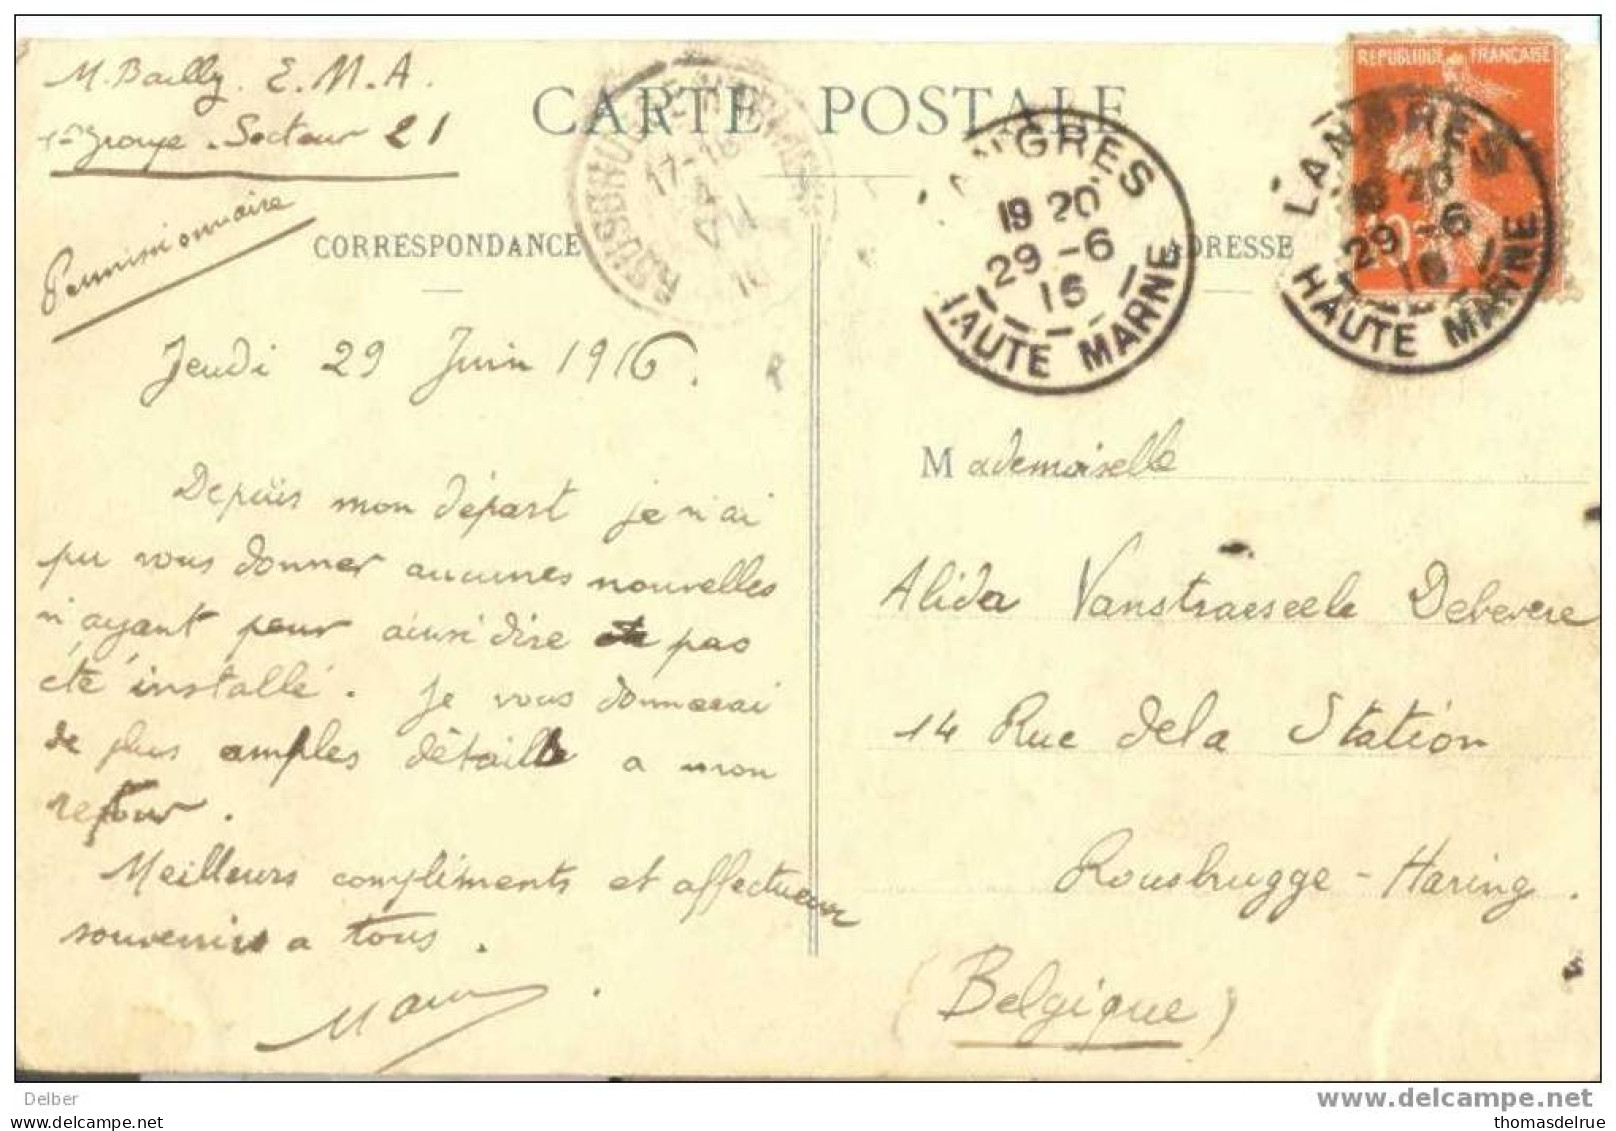 M. Bailly. E.M.A.
1er Groupe. Secteur 21
Permissionnaire
CARTE POSTALE
REPUBLIQUE FRANÇAISE
LANGRES
19 20
29 -6
16
HAUTE MARNE
LANGRES
29 -6
16
HAUTE MARNE
17-18
CORRESPONDANCE
ADRESSE
Jeudi 29 Juin 1916.
Depuis mon départ je n'ai
pu vous donner aucunes nouvelles
n'ayant pour ainsi dire pas
été installé. Je vous donnerai
de plus amples détails a mon
retour.
Meilleurs compliments et affectueux
souvenirs a tous.
Mademoiselle
Alida Vanstraeseele Debevere
14 Rue de la Station
Rousbrugge-Haring.
(Belgique)
Delber
www.delcampe.net
thomasdelrue